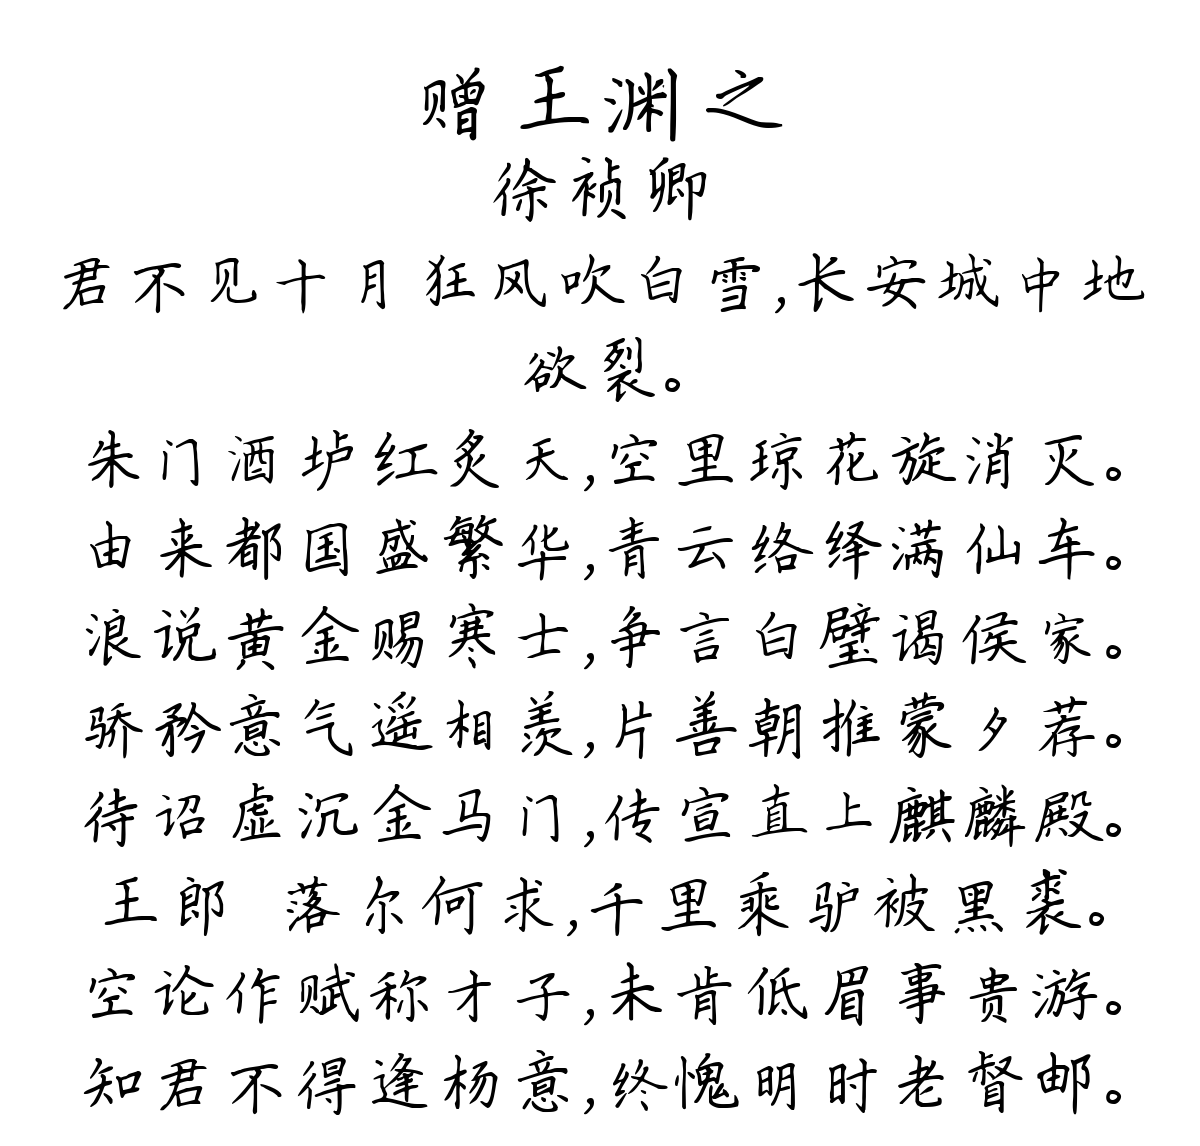 赠王渊之
徐祯卿
君不见十月狂风吹白雪,长安城中地
欲裂。
朱门酒垆红炙天,空里琼花旋消灭。
由来都国盛繁华,青云络绎满仙车。
浪说黄金赐寒士,争言白璧谒侯家。
骄矜意气遥相羡,片善朝推蒙夕荐。
待诏虚沉金马门,传宣直上麒麟殿。
王郎 落尔何求,千里乘驴被黑裘。
空论作赋称才子,未肯低眉事贵游。
知君不得逢杨意,终愧明时老督邮。